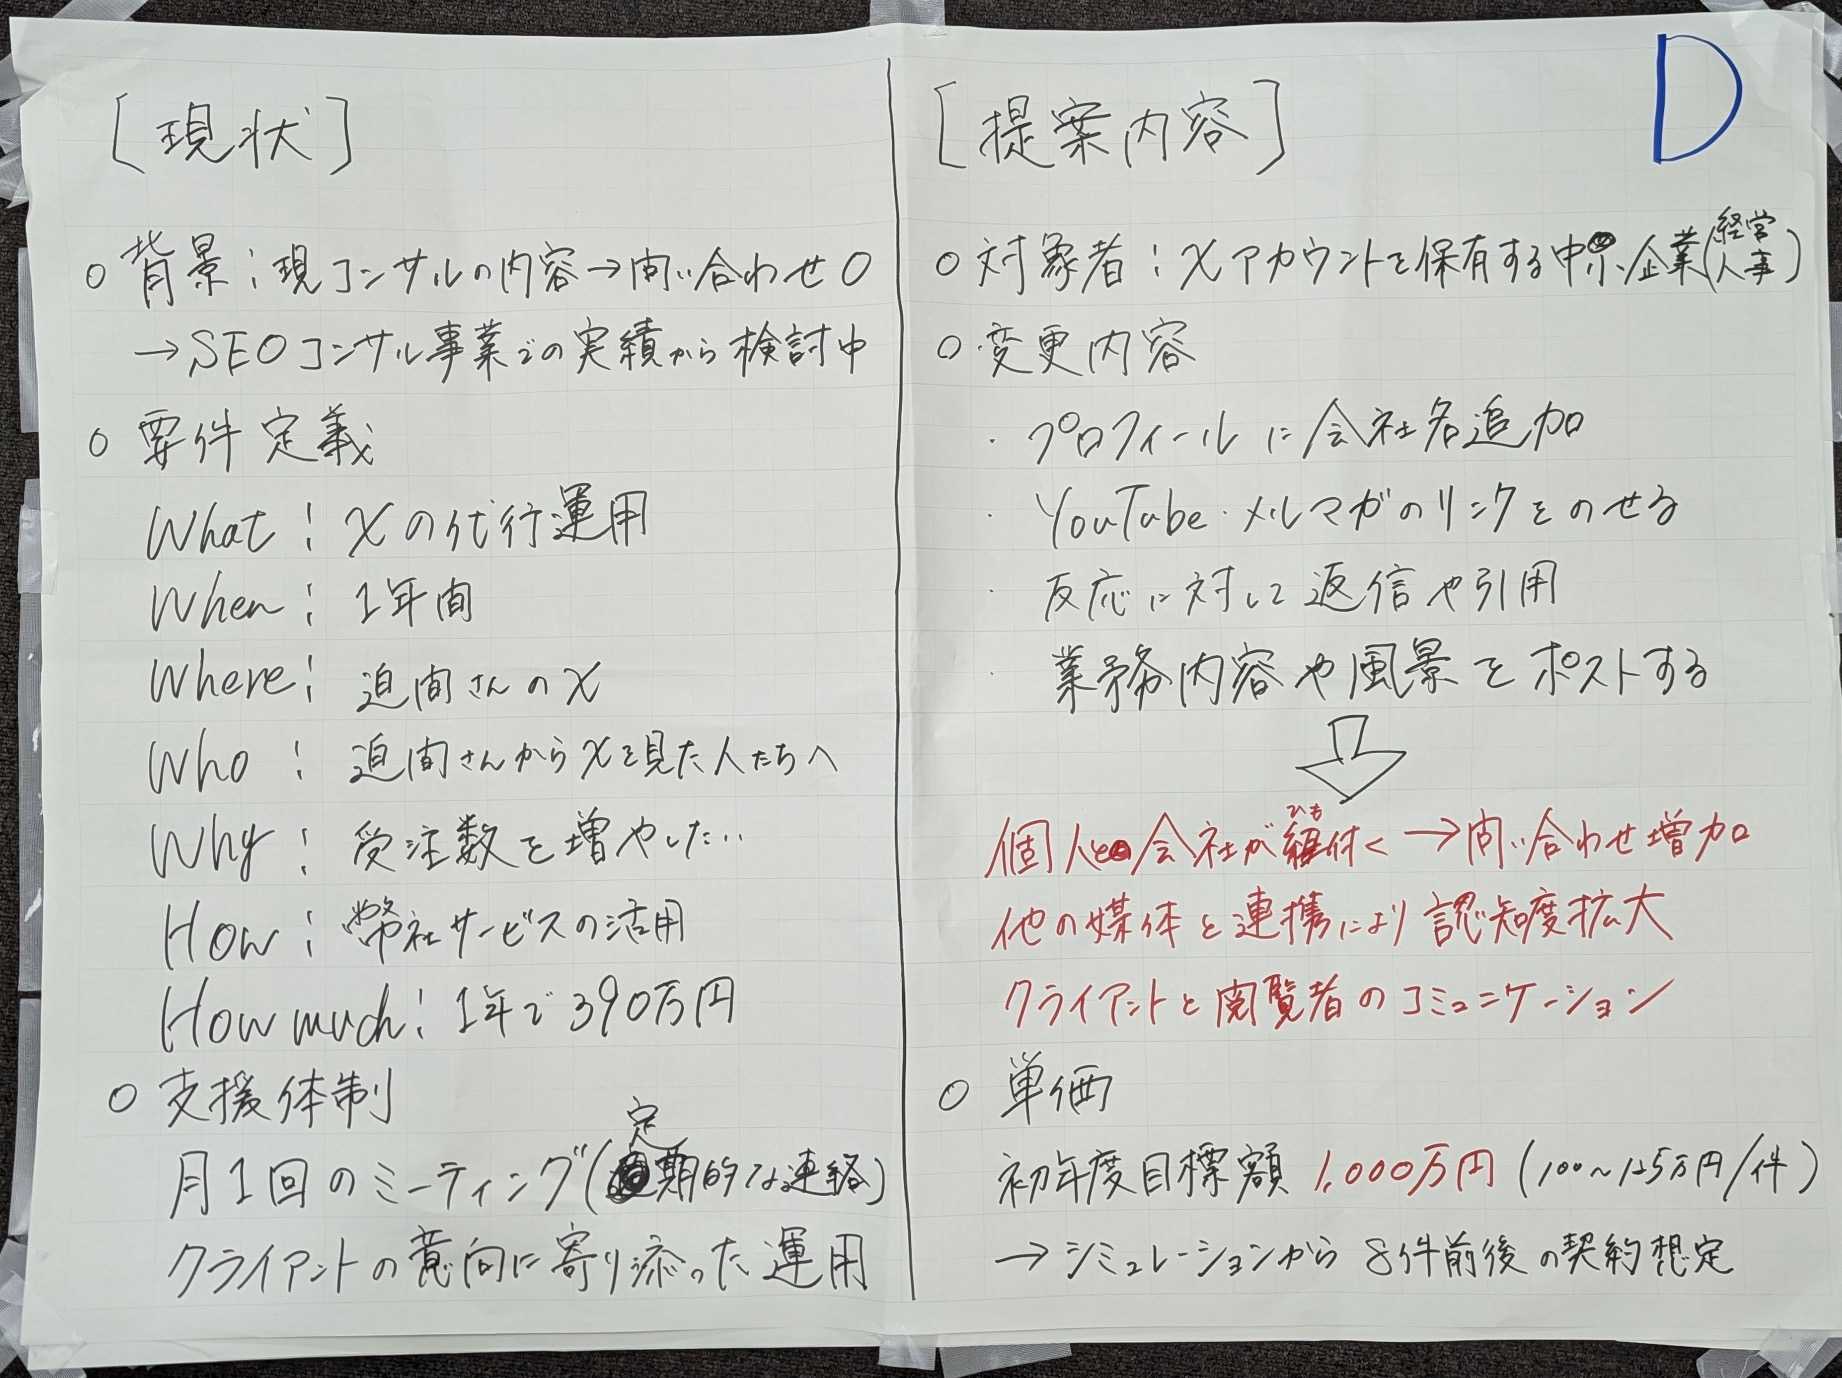 [現状]
○ 背景：現コンサルの内容→問い合わせ○
→SEOコンサル事業での実績から検討中
○ 要件定義
What：Xの代行運用
When：1年間
Where：迫間さんのX
Who：迫間さんからXを見た人たちへ
Why：受注数を増やしたい
How：弊社サービスの活用
How much：1年で390万円
○ 支援体制
月1回のミーティング(定期的な連絡)
クライアントの意向に寄り添った運用
D
[提案内容]
○ 対象者：Xアカウントを保有する中小企業(経営人事)
○ 変更内容
・プロフィールに会社名追加
・YouTube・メルマガのリンクをのせる
・反応に対して返信や引用
・業務内容や風景をポストする
個人と会社が紐付く→問い合わせ増加
ひも
他の媒体と連携により認知度拡大
クライアントと閲覧者のコミュニケーション
○ 単価
初年度目標額 1,000万円(100〜125万円/件)
→シミュレーションから8件前後の契約想定